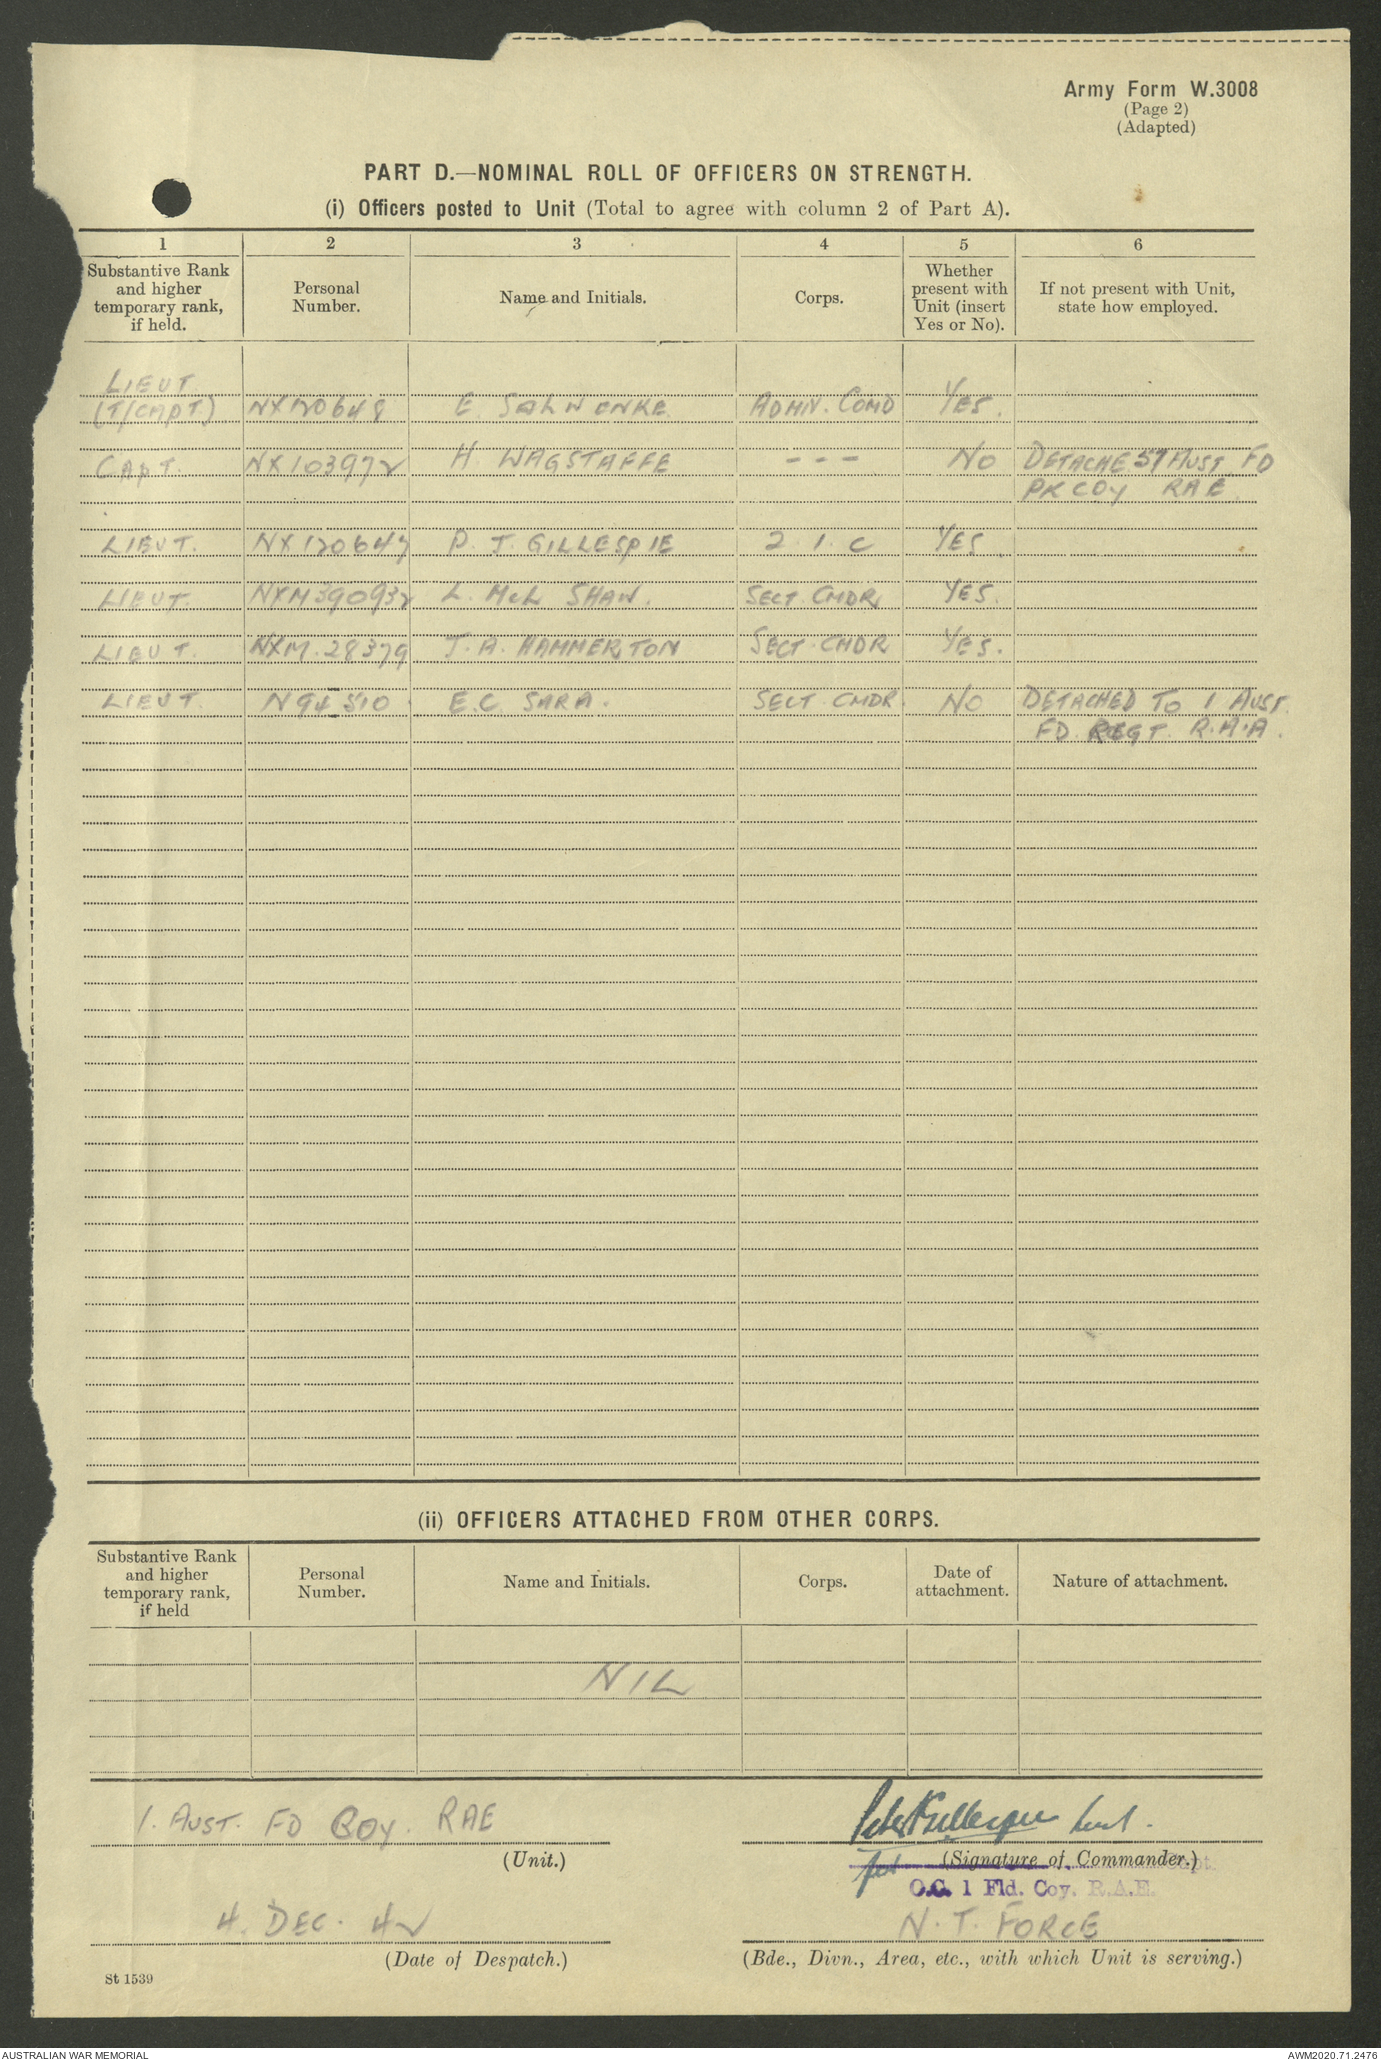 Army Form W.3008
(Page 2)
(Adapted)
PART D.—NOMINAL ROLL OF OFFICERS ON STRENGTH.
(i) Officers posted to Unit (Total to agree with column 2 of Part A).
1 2 3 4 5 6
Substantive Rank and higher temporary rank, if held. Personal Number. Name and Initials. Corps. Whether present with Unit (insert Yes or No). If not present with Unit, state how employed.
LIEUT
(T/CAPT) NX120648 E. SAHWENKE ADMIN. COMD YES.
CAPT. NX103972 H. WAGSTAFFE - - - NO DETACHE 57 AUST FD
PK COY RAE
LIEUT. NX120647 P. J. GILLESPIE 2 I. C YES
LIEUT. NXM390932 L. McL SHAW. SECT. CMDR YES.
LIEUT. NXM.28379 J. A. HAMMERTON SECT. CMDR YES.
LIEUT N94510. E.C. SARA. SECT. CMDR. NO DETACHED TO 1 AUST.
FD REGT. R.A.A.
(ii) OFFICERS ATTACHED FROM OTHER CORPS.
Substantive Rank and higher temporary rank, if held Personal Number. Name and Initials. Corps. Date of attachment. Nature of attachment.
NIL
1. AUST. FD COY. RAE Peter Gillespie Lieut.
(Unit.) for (Signature of Commander.) Capt.
O.C. 1 Fld. Coy. R.A.E.
4. DEC. 42 N. T. FORCE
(Date of Despatch.) (Bde., Divn., Area, etc., with which Unit is serving.)
St 1539
AUSTRALIAN WAR MEMORIAL AWM2020.71.2476